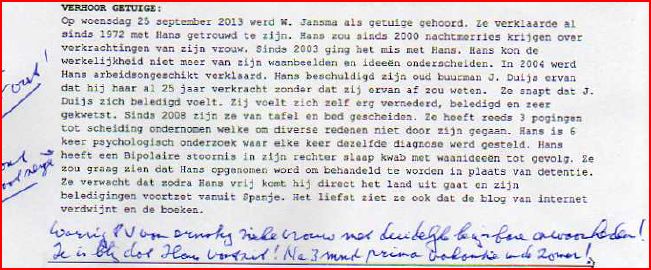 VERHOOR GETUIGE:
Op woensdag 25 september 2013 werd W. Jansma als getuige gehoord. Ze verklaarde al
sinds 1972 met Hans getrouwd te zijn. Hans zou sinds 2000 nachtmerries krijgen over
verkrachtingen van zijn vrouw. Sinds 2003 ging het mis met Hans. Hans kon de
werkelijkheid niet meer van zijn waanbeelden en ideeën onderscheiden. In 2004 werd
Hans arbeidsongeschikt verklaard. Hans beschuldigd zijn oud buurman J. Duijs ervan
dat hij haar al 25 jaar verkracht zonder dat zij ervan af zou weten.  Ze snapt dat J.
Duijs zich beledigd voelt. Zij voelt zich zelf erg vernederd, beledigd en zeer
gekwetst. Sinds 2008 zijn ze van tafel en bed gescheiden. Ze heeft zeeds 3 pogingen
tot scheiding ondernomen welke om diverse redenen niet door zijn gegaan. Hans is 6
keer psychologisch onderzoek waar elke keer dezelfde diagnose werd gesteld. Hans
heeft een Bipolaire stoornis in zijn rechter slaap kwab met waanideeën tot gevolg. Ze
zou graag zien dat Hans opgenomen word om behandeld te worden in plaats van detentie.
Ze verwacht dat zodra Hans vrij komt hij direct het land uit gaat en zijn
beledigingen voortzet vanuit Spanje. Het liefst ziet ze ook dat de blog van internet
verdwijnt en de boeken.
van ernstig zieke vrouw met duidelijke
Ze is blij dat Hans vastzit! Na 3 mnd prima vakantie in de zomer!